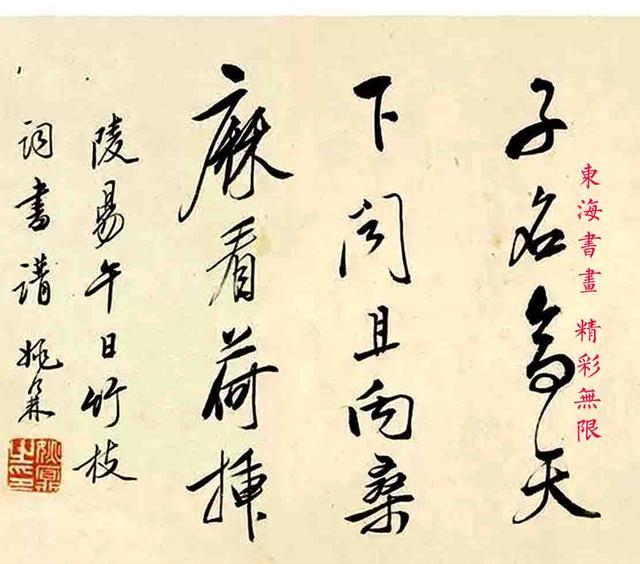 東海書畫 精彩無限
子名高天
下聞且向桑
麻看荷插
陵易午日竹枝
詞書譜 姚鼐